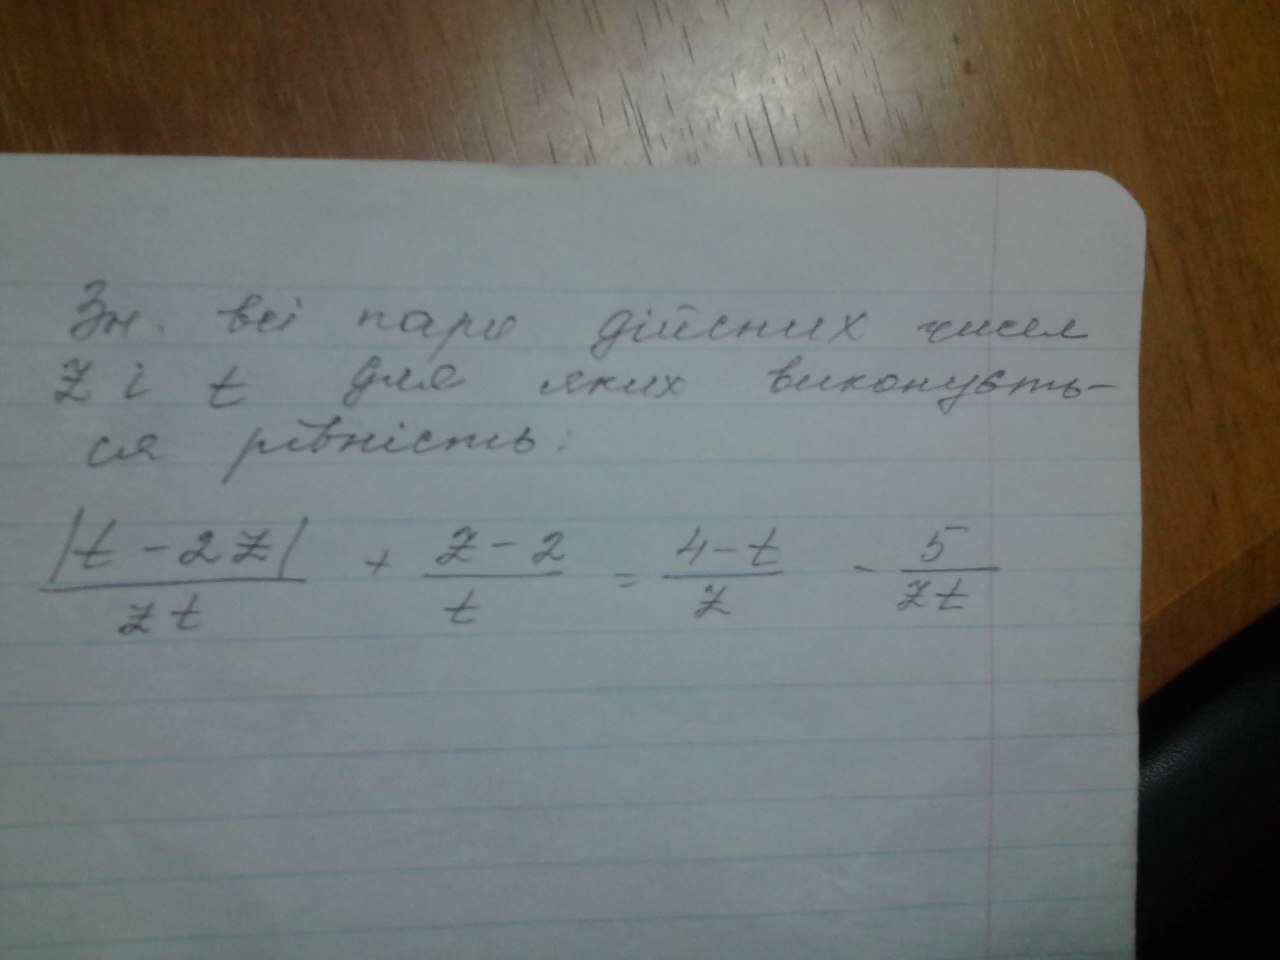 Зн. всі пари дійсних чисел
z і t для яких виконуєть-
ся рівність:
|t - 2z| / zt + z - 2 / t = 4 - t / z - 5 / zt